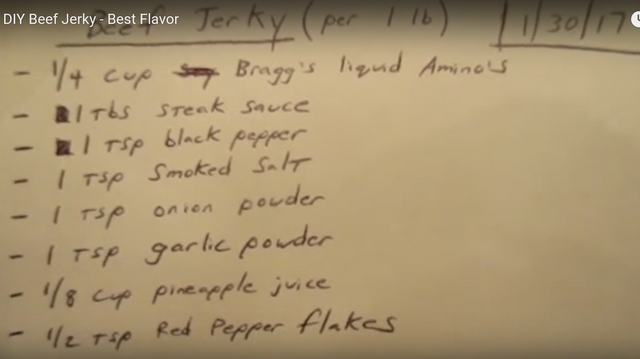 DIY Beef Jerky - Best Flavor
Beef Jerky (per 1 lb) 1/30/17
- 1/4 cup Bragg's liquid Amino's
- 1 Tbs steak sauce
- 1 Tsp black pepper
- 1 Tsp Smoked Salt
- 1 Tsp onion powder
- 1 Tsp garlic powder
- 1/8 cup pineapple juice
- 1/2 Tsp Red Pepper flakes